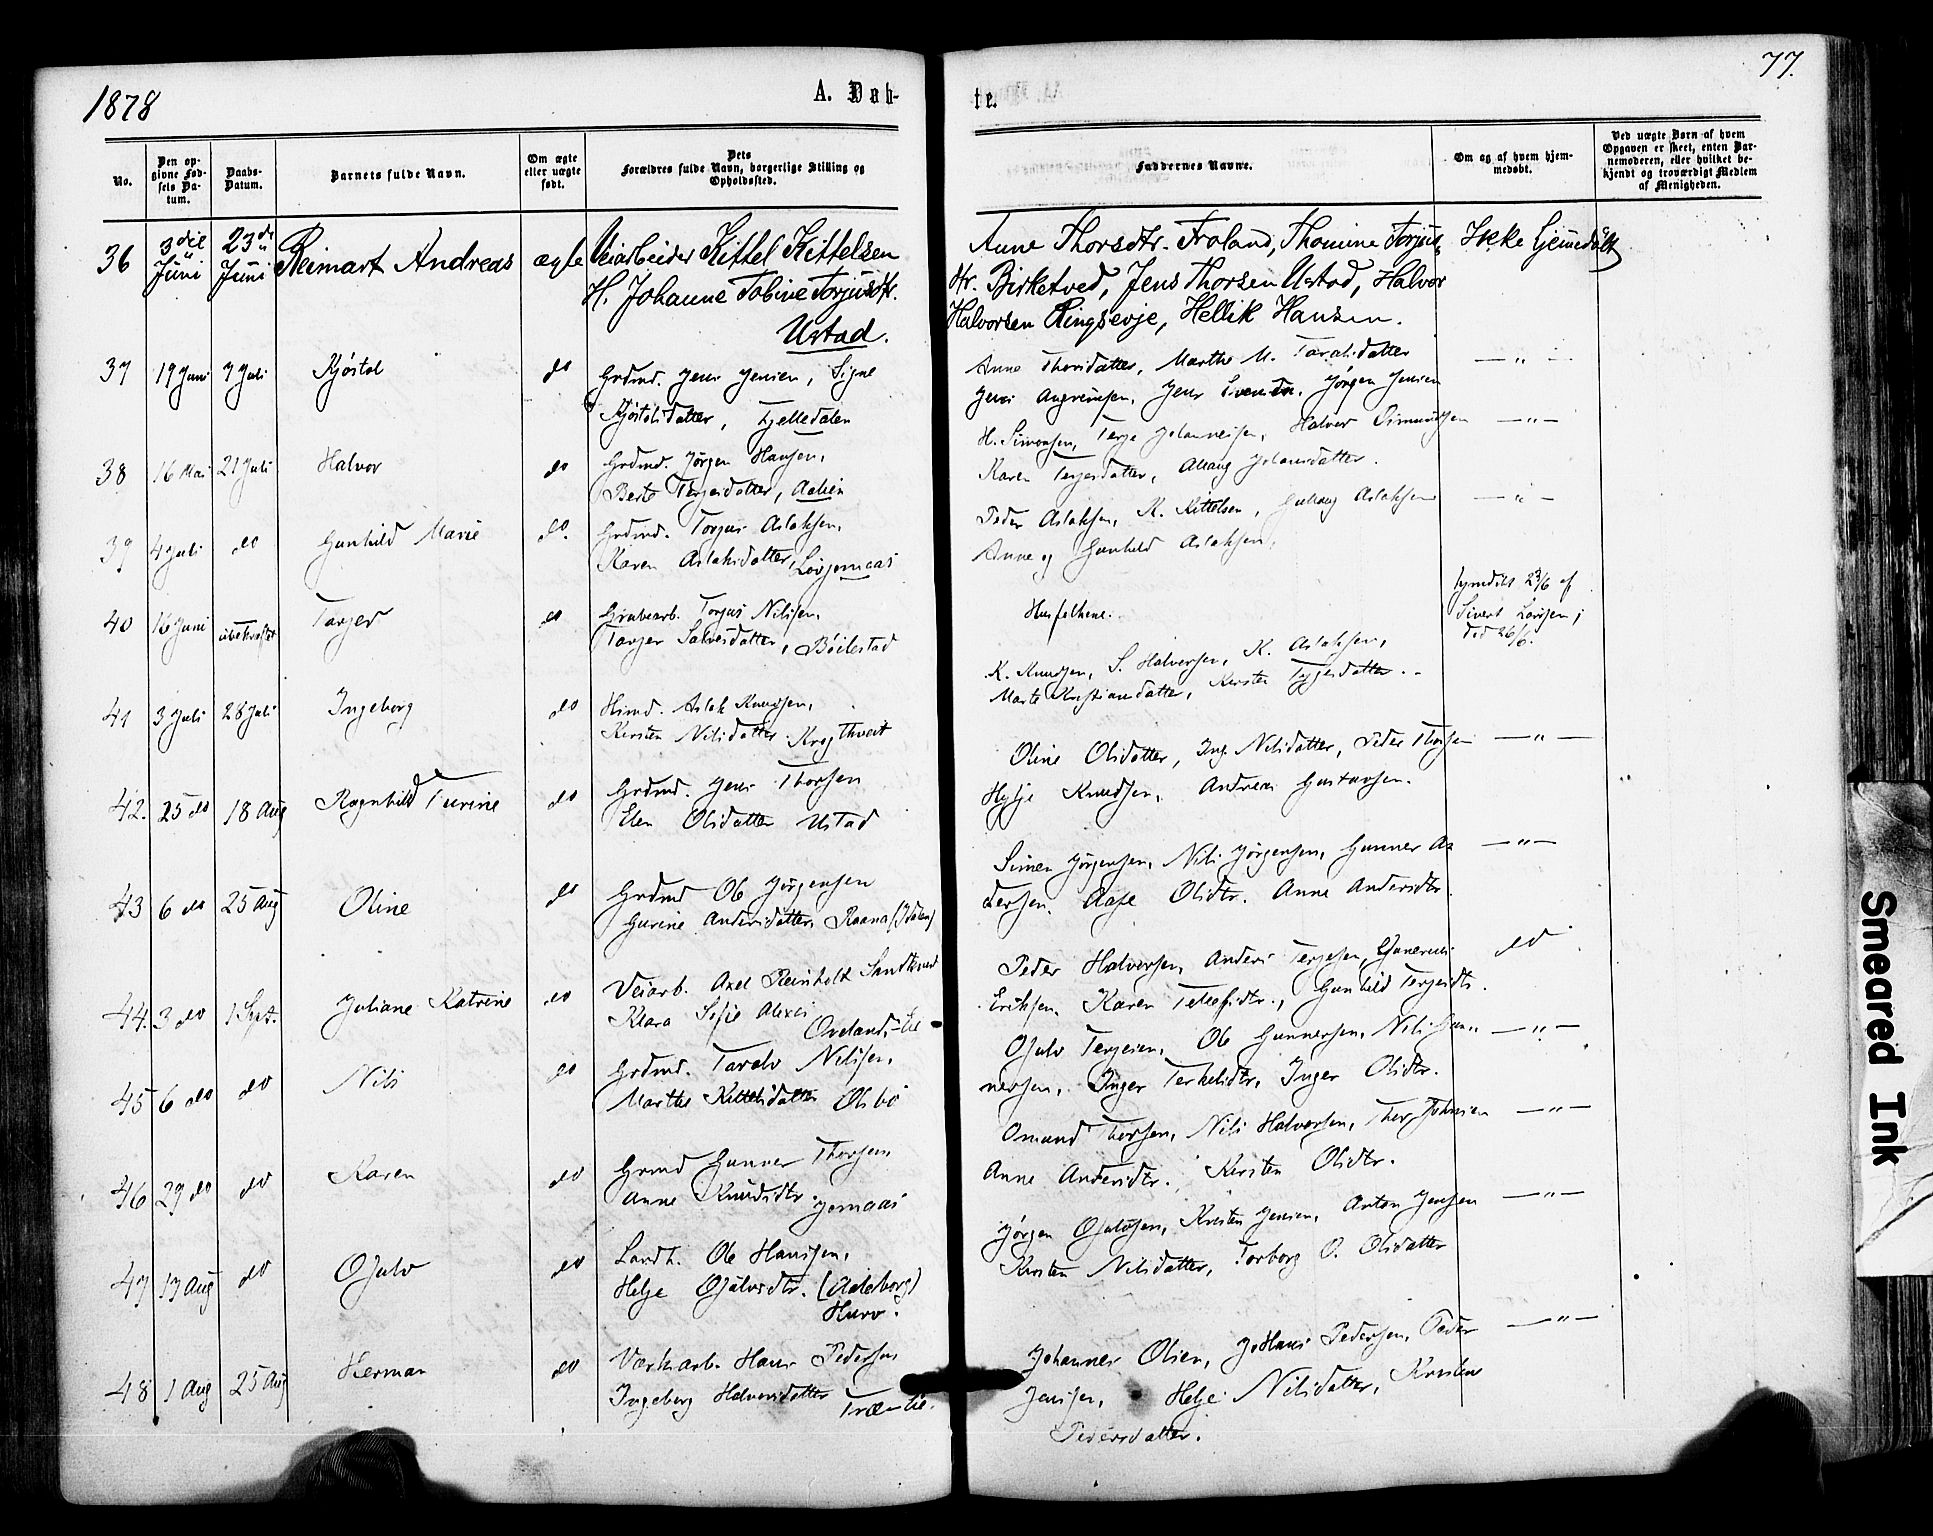 1878
A. Dåb-
te.
77.
No.
Den op-
givne Fød-
sels Da-
tum.
Daabs-
Datum.
Barnets fulde Navn.
Om ægte
eller uægte
født.
Dets
Forældres fulde Navn, borgerlige Stilling og
Opholdssted.
Faddernes Navne.
Om og af hvem hjem-
medøbt.
Ved uægte Børn af hvem
Opgaven er skeet, enten Bar-
nemoderen, eller hvilket be-
kjendt og troværdigt Medlem
af Menigheden.
36 3die Juni 23de Juni Reimart Andreas ægte Veiarbeider Kittel Kittelsen
H. Johanne Tobine Torjusdtr.
Ustad.
Anne Thorsdtr. Froland, Thomine Torjus
dtr. Birketved, Jens Thorsen Ustad, Halvor
Halvorsen Ringsevje, Hellik Hansen.
Ikke hjemedøbt
37 19 Juni 7 Juli Kjøstol do Grdmd. Jens Jensen, Signe
Kjøstolsdatter, Fjelledalen
Anne Thorsdatter, Marthe M. Taralsdatter
Jens Angrimsen, Jens Svendsen, Jørgen Jensen
— " —
38 16 Mai 21 Juli Halvor do Grdmd. Jørgen Hansen,
Berte Terjesdatter, Aasen
H. Simonsen, Terje Johannesen, Halvor Simundsen
Karen Terjesdatter, Aslaug Johansdatter.
— " —
39 4 Juli do Gunhild Marie do. Grdmd. Torjus Aslaksen,
Karen Aslaksdatter, Løvjomaas
Peder Aslaksen, K. Kittelsen, Aslaksen
Anne og Gunhild Aslaksen.
— " —
40 16 Juni ubekræftet Torjer do Torjus Nilsen,
Torjer Salvesdatter, Bøilestad
Husfolkene.
hjemdøbt 23/6 af
Sivert Larsen;
død 26/6.
41 3 Juli 28 Juli Ingeborg do Husmd. Aslak Knudsen,
Kirsten Nilsdatter Krogthveit
K. Knudsen, S. Halvorsen, K. Aslaksen,
Marte Kristiansdatter, Kirsten Terjesdatter.
42. 25 do 18 Aug Ragnhild Turine do Grdmd. Jens Thorsen
Elen Olsdatter Ustad
Oline Olsdatter, Ing. Nilsdatter, Peder Thorsen
Helje Knudsen, Andreas Gustavsen.
— " —
43 6 do 25 Aug Oline do Grdmd Ole Jørgensen
Gurine Andersdatter Raana (Idalen)
Simen Jørgensen, Nils Jørgensen, Gunner An
dersen. Aase Olsdtr. Anne Andersdtr.
— " —
44. 3 do 1 Sept. Juliane Katrine do Veiarb. Axel Reinholt Sandkved
Klara Sofie Alexis
Oveland-Eie
Peder Halvorsen, Anders Terjesen, Gunerius
Eriksen. Karen Telefsdtr., Gunhild Terjesdtr.
do
45 6 do do Nils do Grdmd. Taralv Nilsen,
Marthe Kittelsdatter Olsbo
Ojulv Terjesen, Ole Gunnersen, Nils Gun-
nersen, Inger Terkelsdtr, Inger Olsdtr.
— " —
46 29 do do Karen do Grmd Gunner Thorsen
Anne Knudsdtr. Jomaas
Omund Thorsen, Nils Halvorsen, Ther Johnsen
Anne Andersdtr., Kirsten Olsdtr.
— " —
47 17 Aug do Ojulv do Landh. Ole Hansen,
Helje Ojulvsdtr. (Aaleborg)
Hurv.
Jørgen Ojulvsen, Kristen Jensen, Anton Jensen
Kirsten Nilsdatter, Torborg O. Olsdatter
— " —
48 1 Aug 25 Aug Herman do Værkarb. Hans Pedersen
Ingeborg Halvorsdatter Træn Eie.
Johannes Olsen, Johans Pedersen, Peder
Jensen, Helje Nilsdatter, Kirsten
Pedersdatter.
— " —
Smeared Ink